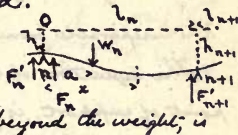 O lₙ
h wₙ hₙ₊₁
F'ₙ R a Fₙ x F'ₙ₊₁
beyond the weight, is